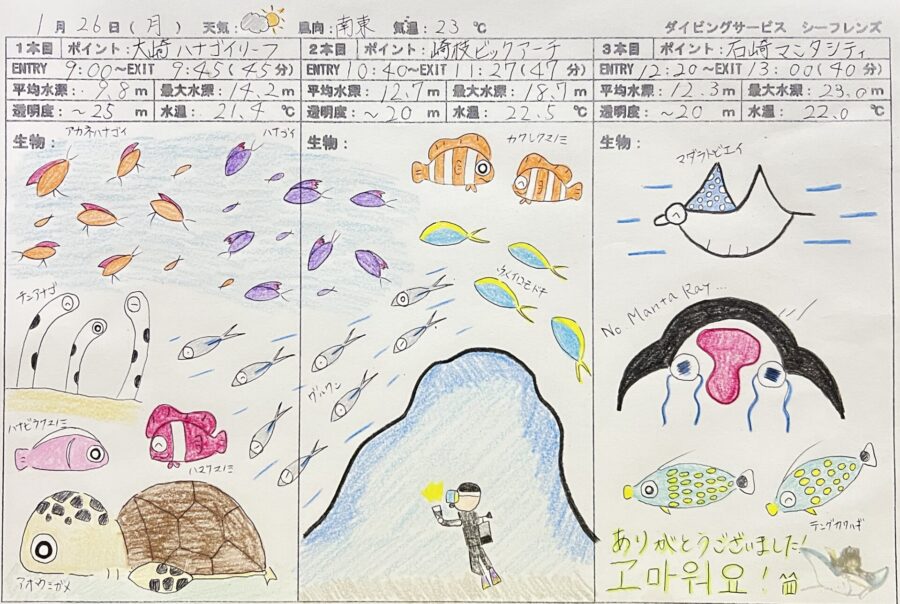 1月26日(月) 天気: 風向:南東 気温:23℃ ダイビングサービス シーフレンズ
1本目 ポイント:大崎ハナゴイリーフ
ENTRY 9:00~EXIT 9:45(45分)
平均水深:9.8m 最大水深:14.2m
透明度:~25m 水温:21.4℃
生物:
アカネハナゴイ
ハナゴイ
チンアナゴ
ハナビラクマノミ
ハマクマノミ
アオウミガメ
2本目 ポイント:崎枝ビッグアーチ
ENTRY 10:40~EXIT 11:27(47分)
平均水深:12.7m 最大水深:18.7m
透明度:~20m 水温:22.5℃
生物:
カクレクマノミ
うめいろもどき
グルクン
3本目 ポイント:石崎マンタシティ
ENTRY 12:20~EXIT 13:00(40分)
平均水深:12.3m 最大水深:23.0m
透明度:~20m 水温:22.0℃
生物:
マダラトビエイ
No Manta Ray...
テングカワハギ
ありがとうございました!
고마워요!